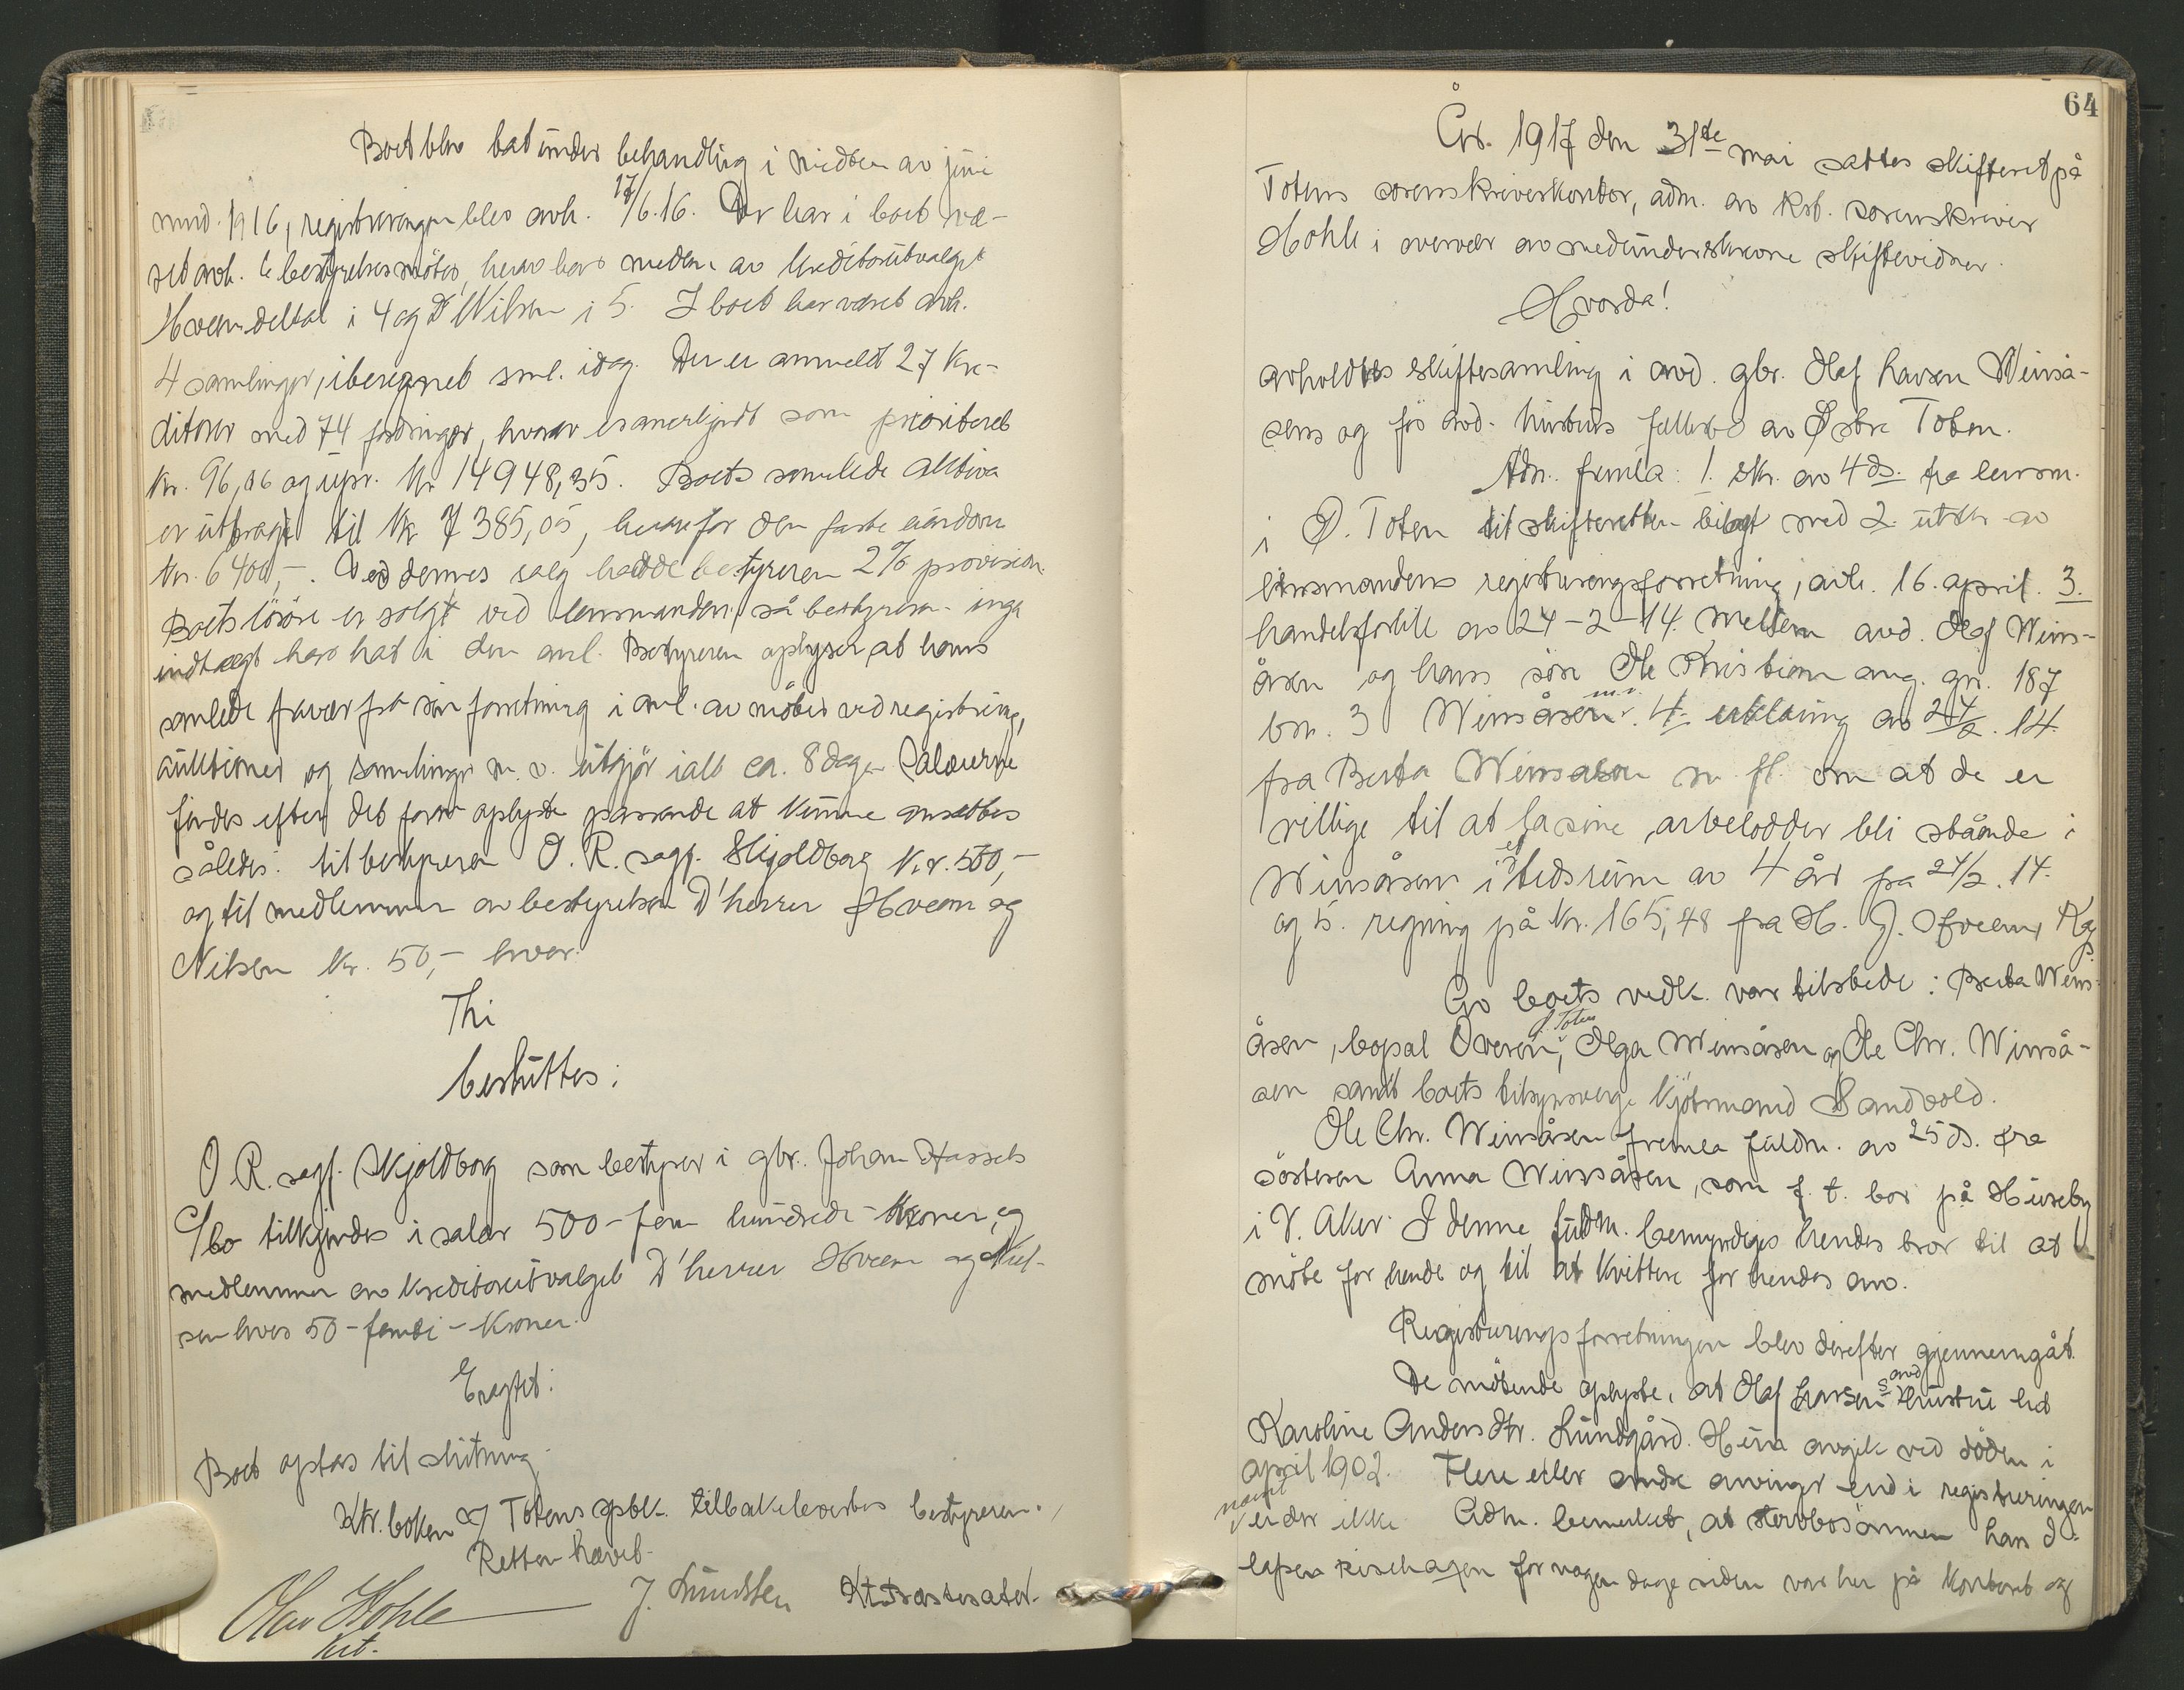 Boet blev tat under behandling i midten av juni
mnd. 1916, registreringen blev avh. 17/6.16. Der har i boet væ-
ret avh. 6 bestyrelsesmöter, herav har medlem av kreditorutvalget
Hveem deltat i 4 og Nilsen i 5. I boet har været avh.
4 samlinger, iberegnet saml. idag. Der er anmeldt 27 kre-
ditorer med 74 fordringer, hvorav er anerkjendt som prioritered
kr. 96,06 og upr. kr 14948,35. Boets samlede aktiva
er utbragt til kr 7385,05, herav for den faste eiendom
kr. 6400,-. Ved dennes salg hadde bestyreren 2% provision.
Boets lösöre er solgt ved lensmanden, så bestyreren inga
indtægt har hat i den anl. Bestyreren oplyser, at hans
samlede fravær fra sin forretning i anl. av möter ved registrering,
auktioner og samlinger m. v. utgjör ialt ca. 8 dager. Salærerne
findes efter det foran oplyste passende at kunne ansættes
således: til bestyreren O. R. sagf. Skjoldborg kr. 500,-
og til medlemmer av bestyrelsen D'herrer Hveem og
Nilsen kr. 50,- hver.
Thi
besluttes:
O R. sagf. Skjoldborg som bestyrer i gbr. Johan Hassels
c/bo tilkjendes i salær 500 - fem hundrede - kroner, og
medlemmer av kreditorutvalget D'herrer Hveem og Niel-
sen hver 50 - femti - kroner.
Eragtet:
Boet optas til slutning.
Ktr. boken i Totens spbk. tilbakeleveres bestyreren.
Retten hævet.
Olav Hohle
kst.
J. Lundsten
64
År. 1917 den 31te mai sattes skifteret på
Totens sorenskriverkontor, adm. av kst. sorenskriver
Hohle i overvær av medunderskrevne skiftevidner.
Hvorda!
avholdtes skiftesamling i avd. gbr. Olaf Larsen Wemså-
sens og för avd. hustrus fællesbo av Östre Toten.
Adm. fremla: 1. skr. av 4 ds. fra lensm.
i Ö. Toten til skifteretten bilagt med 2. utskr. av
lensmandens registreringsforretning, avh. 16. april. 3.
handelsforlik av 24-2-14. mellem avd. Olaf Wems-
åsen og hans sön Ole Kristian ang. gn. 187
bn. 3 Wemsåsen m.v. 4. erklæring av 24/2. 14.
fra Berta Wemsåsen m. fl. om at de er
villige til at la sine arvelodder bli stående i
Wemsåsen i et tidsrum av 4 år fra 24/2. 14.
og 5. regning på kr. 165,48 fra H. J. Hveem, Kap.
Av boets vedk. var tilstede: Berta Wems-
åsen, bopæl Överen, Ö. Toten, Olga Wemsåsen og Ole Chr. Wemså-
sen samt boets tilsynsverge kjötmand Sandvold.
Ole Chr. Wemsåsen fremla fuldm. av 25 ds. fra
söstren Anna Wemsåsen, som f. t. bor på Huseby
i V. Aker. I denne fuldm. bemyndiges hendes bror til at
möte for hende og til at kvittere for hendes arv.
Registreringsforretningen blev derefter gjennemgåt.
De mötende oplyste, at Olaf Larsens avd. hustru hed
Karoline Andersdtr. Lundgård. Hun avgik ved döden i
april 1902. Flere eller andre arvinger end i registreringen
nævnt er der ikke. Adm. bemerket, at stervbosönnen Lars O-
lafsen for nogen dage siden var her på kontoret og